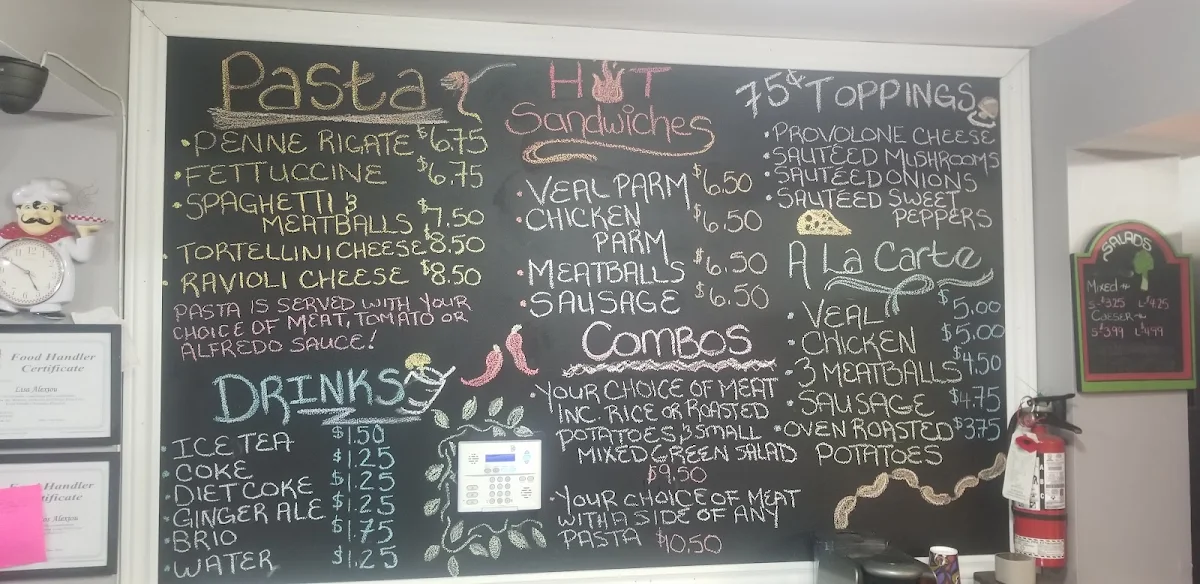 Pasta
• PENNE RIGATE $6.75
• FETTUCCINE $6.75
• SPAGHETTI &
MEATBALLS $7.50
• TORTELLINI CHEESE $8.50
• RAVIOLI CHEESE $8.50
PASTA IS SERVED WITH YOUR
CHOICE OF MEAT, TOMATO OR
ALFREDO SAUCE!
DRINKS
• ICE TEA $1.50
• COKE $1.25
• DIET COKE $1.25
• GINGER ALE $1.25
• BRIO $1.75
• WATER $1.25
HOT
Sandwiches
• VEAL PARM $6.50
• CHICKEN
PARM $6.50
• MEATBALLS $6.50
• SAUSAGE $6.50
COMBOS
• YOUR CHOICE OF MEAT
INC. RICE OR ROASTED
POTATOES & SMALL
MIXED GREEN SALAD
$9.50
• YOUR CHOICE OF MEAT
WITH A SIDE OF ANY
PASTA $10.50
75¢ TOPPINGS
• PROVOLONE CHEESE
• SAUTEED MUSHROOMS
• SAUTEED ONIONS
• SAUTEED SWEET
PEPPERS
A La Carte
• VEAL $5.00
• CHICKEN $5.00
• 3 MEATBALLS $4.50
• SAUSAGE $4.75
• OVEN ROASTED $3.75
POTATOES
SALADS
Mixed
S-$3.25 L-$4.25
Caeser
S-$3.99 L-$4.99
Food Handler
Certificate
Lisa Alexiou
Handler
tificate